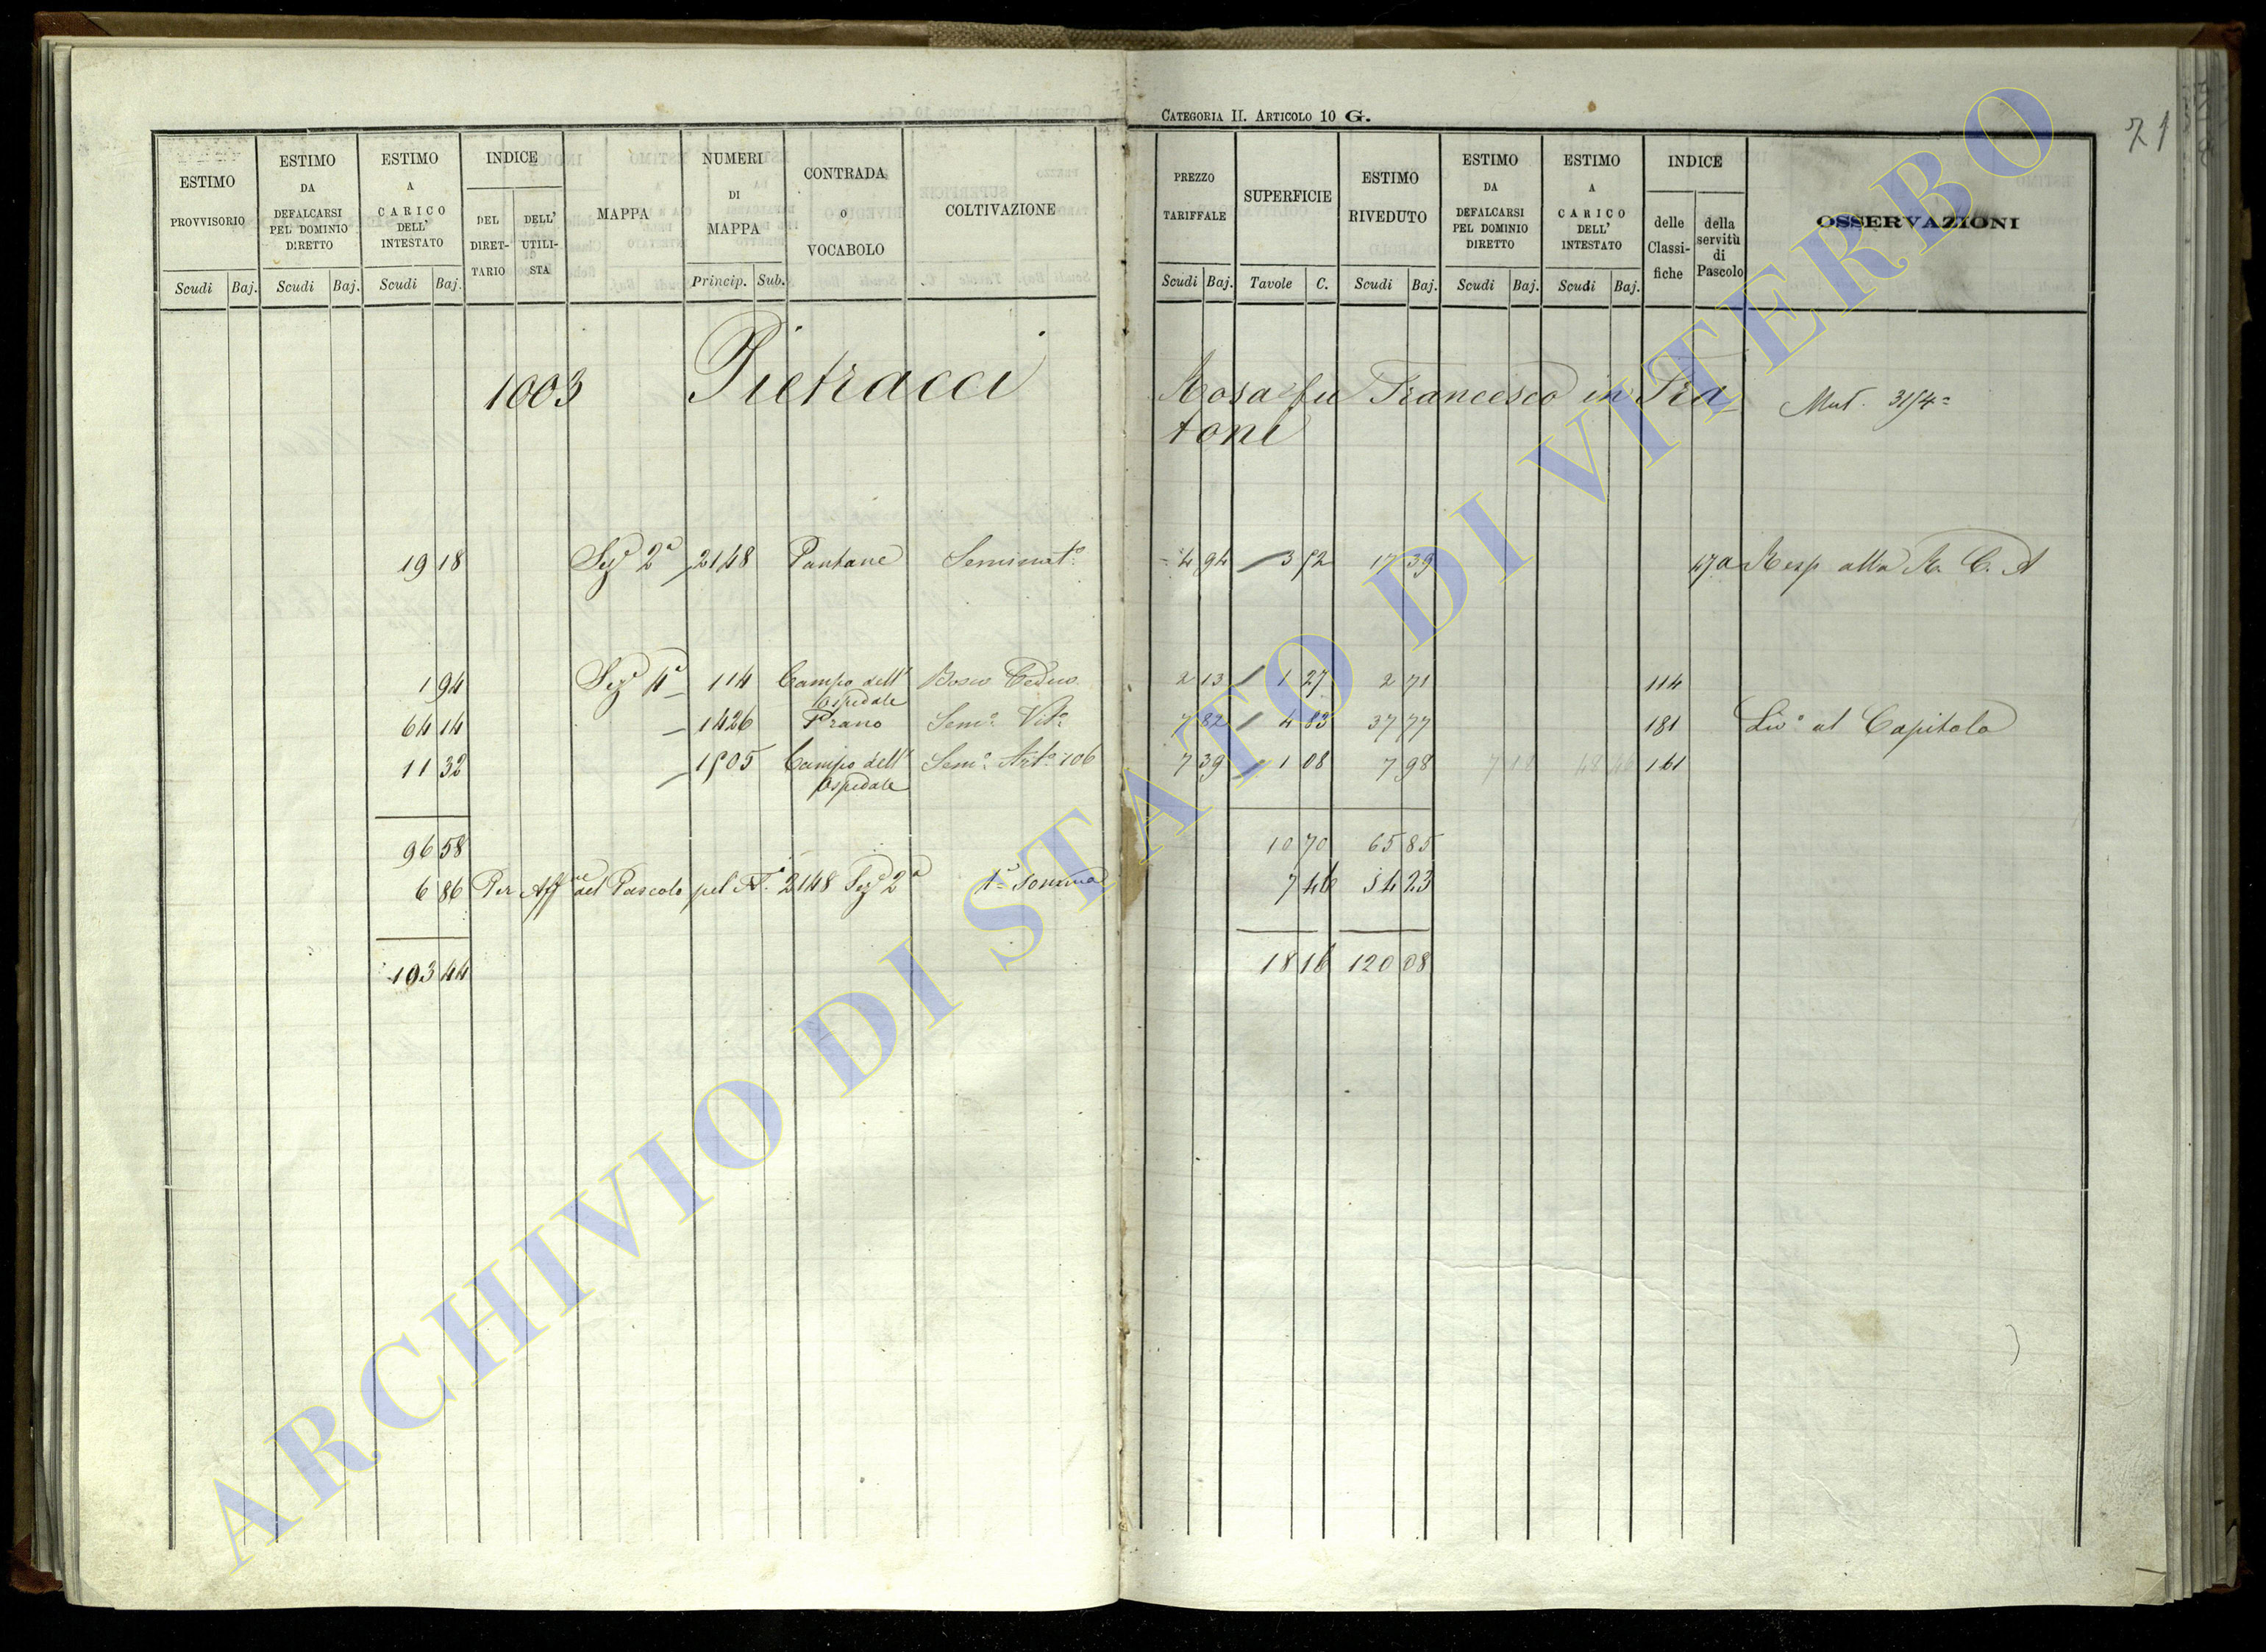 CATEGORIA II. ARTICOLO 10 G.
71
ESTIMO PROVVISORIO Scudi Baj.
ESTIMO DA DEFALCARSI PEL DOMINIO DIRETTO Scudi Baj.
ESTIMO A CARICO DELL' INTESTATO Scudi Baj.
INDICE DEL DIRET- TARIO DELL' UTILI- STA
MAPPA
NUMERI DI MAPPA Princip. Sub.
CONTRADA o VOCABOLO
COLTIVAZIONE
PREZZO TARIFFALE Scudi Baj.
SUPERFICIE Tavole C.
ESTIMO RIVEDUTO Scudi Baj.
ESTIMO DA DEFALCARSI PEL DOMINIO DIRETTO Scudi Baj.
ESTIMO A CARICO DELL' INTESTATO Scudi Baj.
INDICE delle Classi- fiche della servitù di Pascolo
OSSERVAZIONI
1003 Pietracci Rosa fu Francesco in Fra
toni
Mut. 3154=
19 18 Sez.e 2a 2148 Pantane Seminat.o 4 94 3 52 17 39 47a Resp alla R. C. A
1 94 Sez.e 4a 114 Campo dell' Ospedale Bosco Ceduo 2 13 1 27 2 71 114
64 14 1426 Prano Sem.o Vit.o 7 82 4 83 37 77 181 Liv.o al Capitolo
11 32 1505 Campo dell' Ospedale Sem.o Art.o 106 7 39 1 08 7 98 161
96 58 10 70 65 85
6 86 Per Aff.ne del Pascolo pel N.o 2148 Sez.e 2a 1a Somma 7 46 54 23
103 44 18 16 120 08
ARCHIVIO DI STATO DI VITERBO